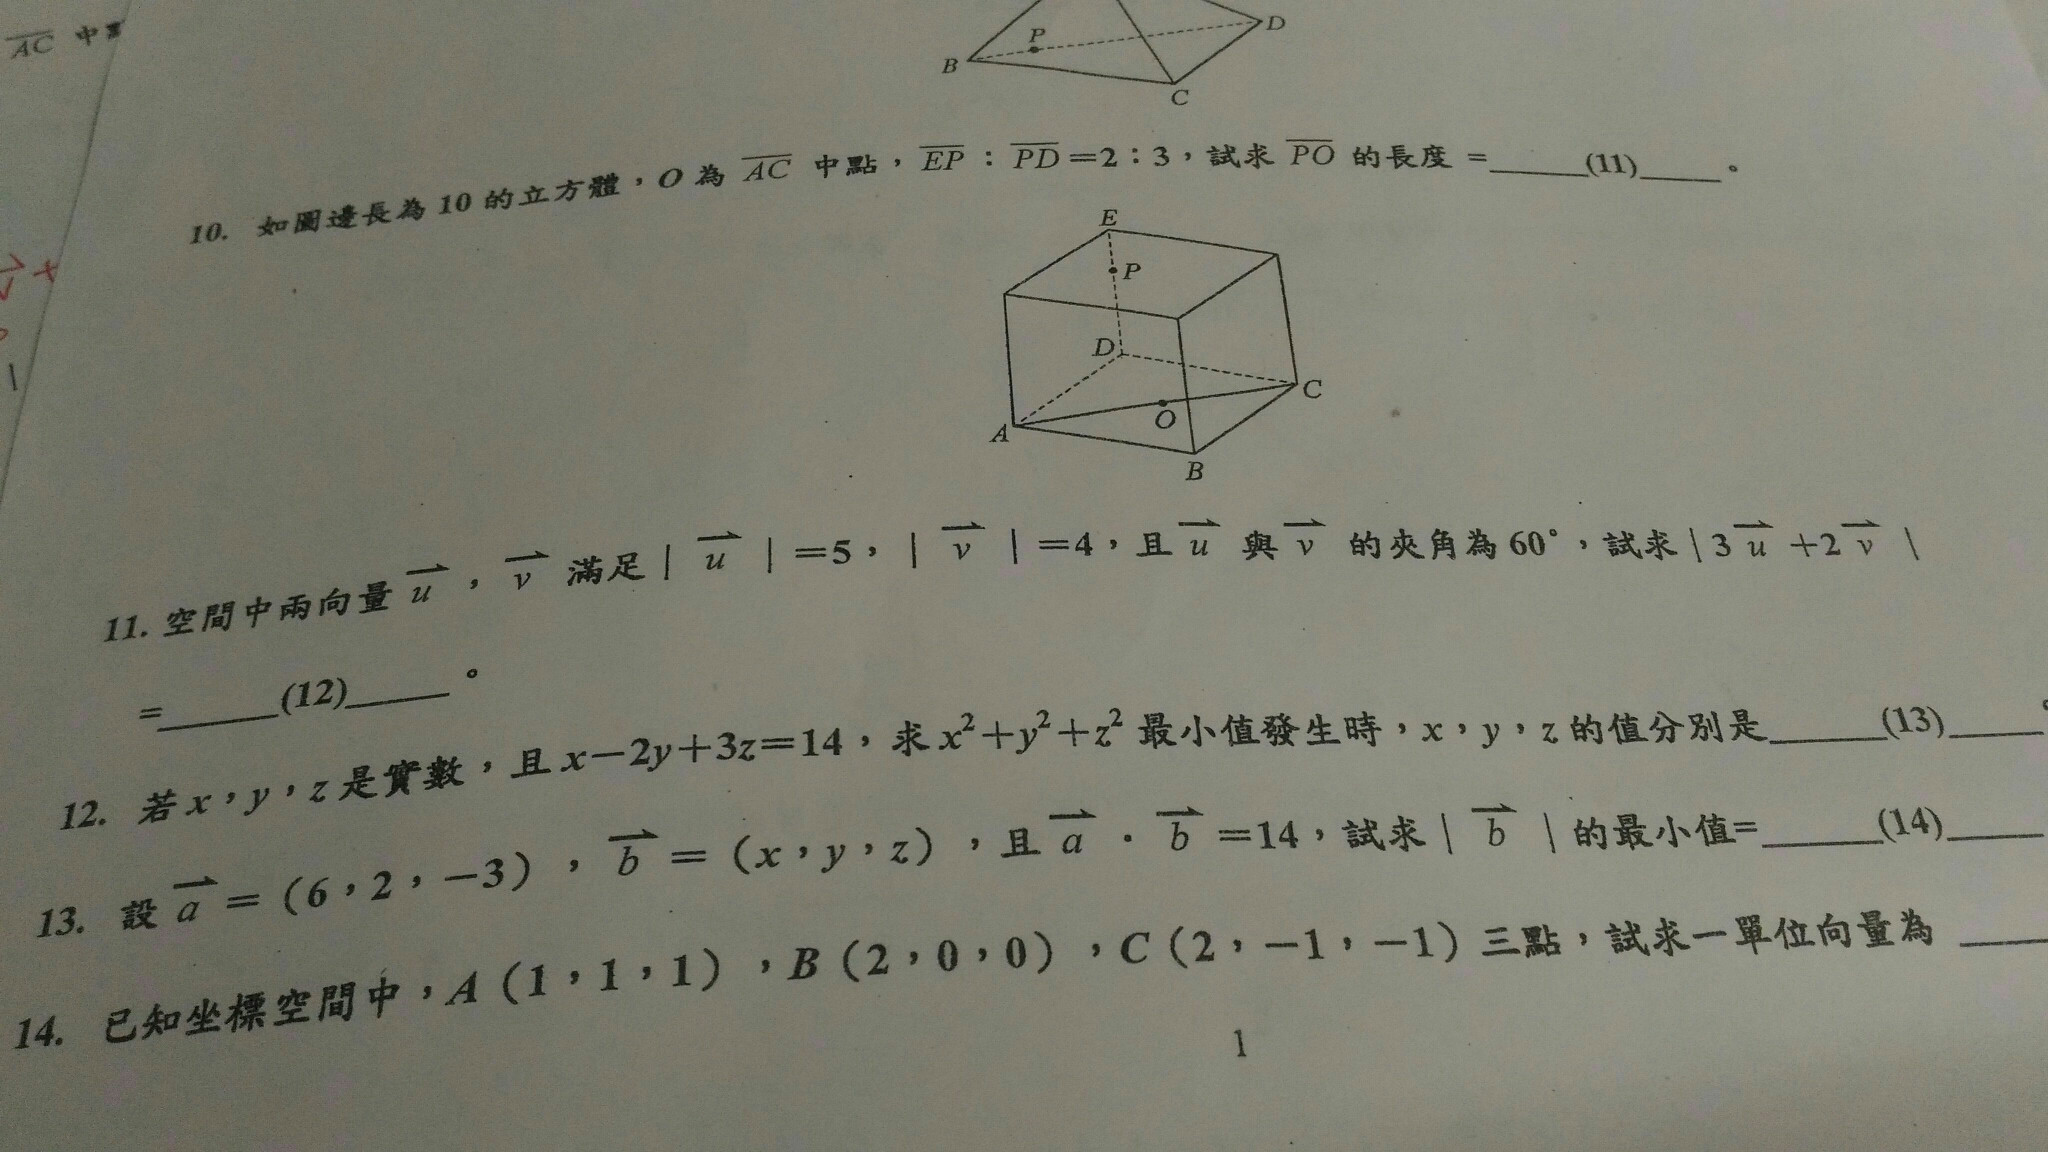 AC 中
P
D
B
C
10. 如圖邊長為 10 的立方體，O 為 AC 中點，EP：PD＝2：3，試求 PO 的長度 =______(11)_____。
E
P
D
C
A
O
B
11. 空間中兩向量 u，v 滿足｜u｜＝5，｜v｜＝4，且 u 與 v 的夾角為 60°，試求｜3u＋2v｜
=______(12)_____。
12. 若 x，y，z 是實數，且 x－2y＋3z＝14，求 x²＋y²＋z² 最小值發生時，x，y，z 的值分別是______(13)_____。
13. 設 a＝(6，2，－3)，b＝(x，y，z)，且 a．b＝14，試求｜b｜的最小值=______(14)_____
14. 已知坐標空間中，A(1，1，1)，B(2，0，0)，C(2，－1，－1) 三點，試求一單位向量為 ____
1